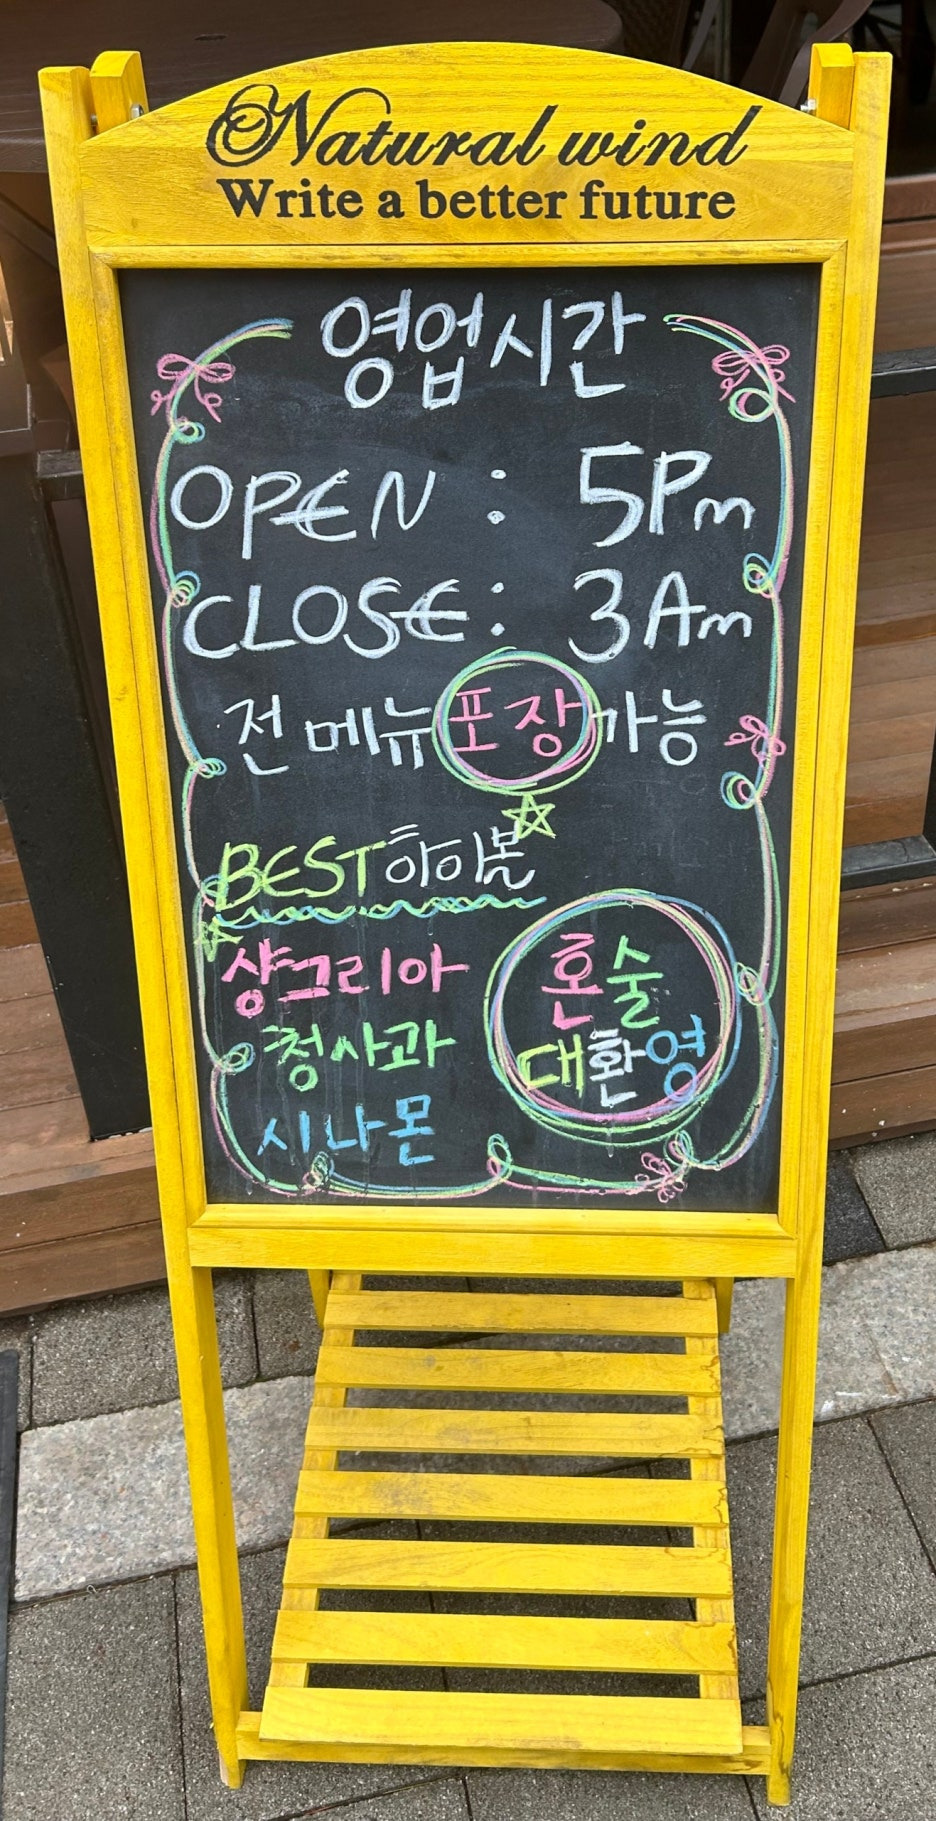 Natural wind
Write a better future
영업시간
OPEN : 5Pm
CLOSE : 3Am
전 메뉴 포장 가능
BEST 하이볼
샹그리아
청사과
시나몬
혼술
대환영